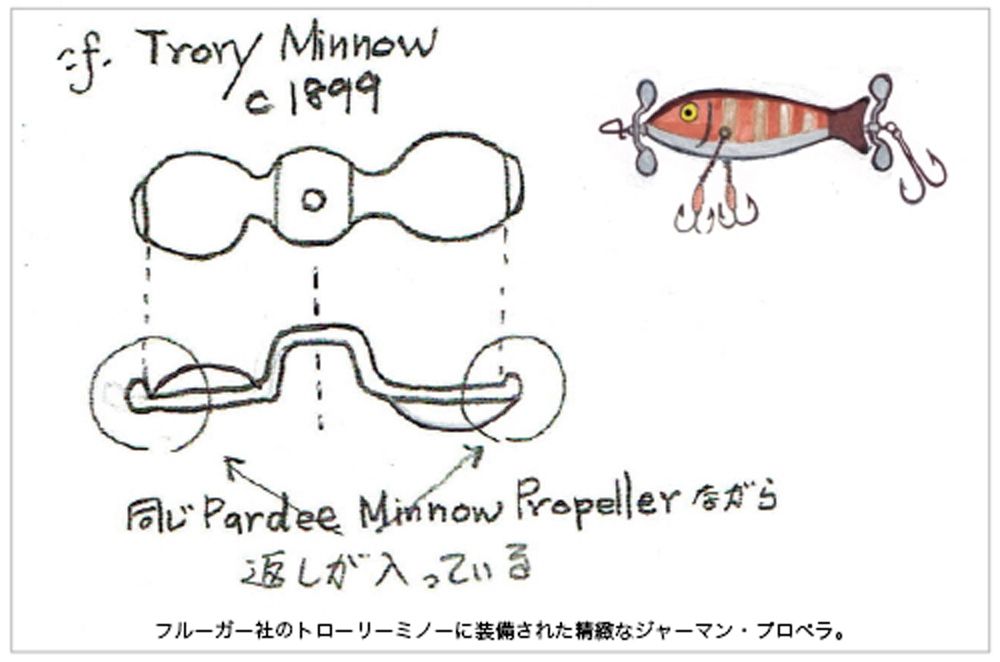 cf. Trory Minnow
c 1899
同じ Pardee Minnow Propeller ながら
返しが入っている
フルーガー社のトローリーミノーに装備された精緻なジャーマン・プロペラ。